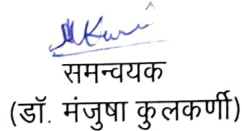 समन्वयक
(डॉ. मंजुषा कुलकर्णी)